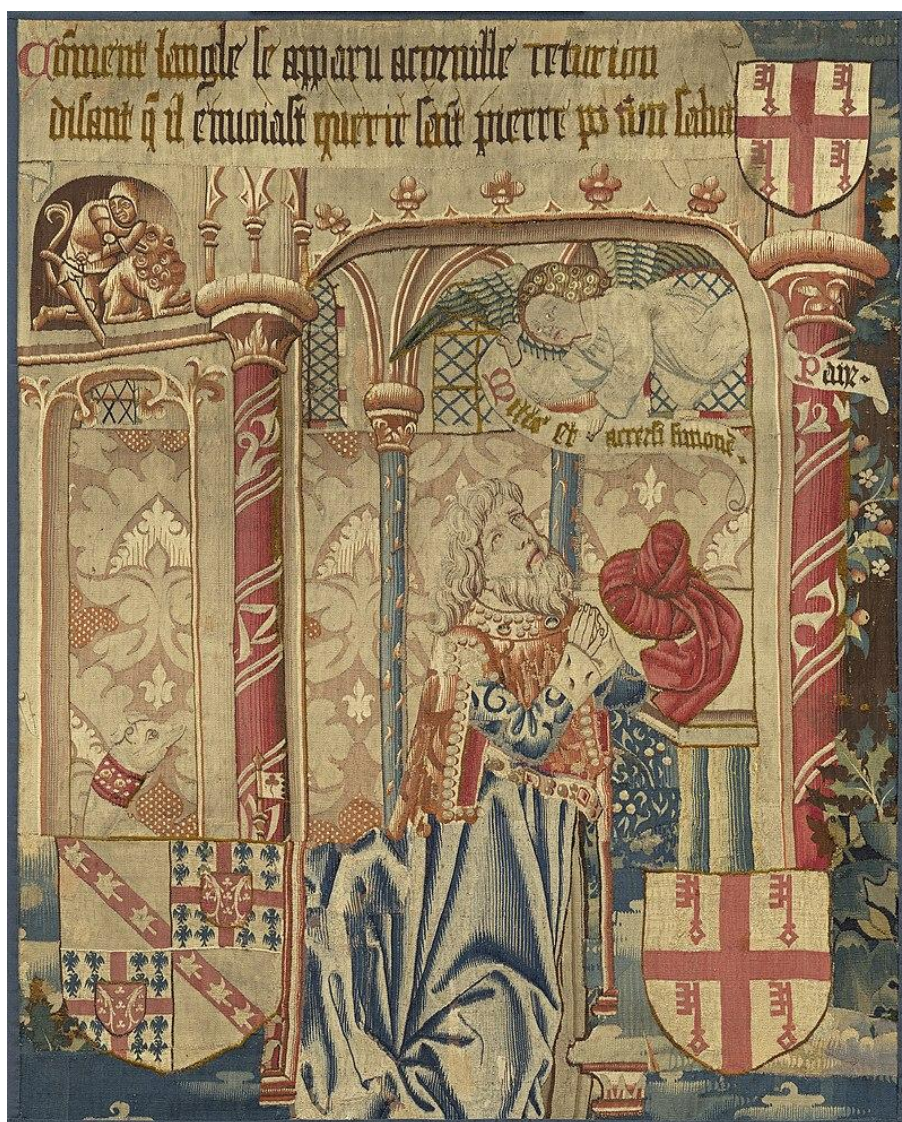 Cõment langle se apparu acornille teturion
disant q̃ il enuoiast querir sait pierre po son salut
Mitte et accersi simonē.
Paix.